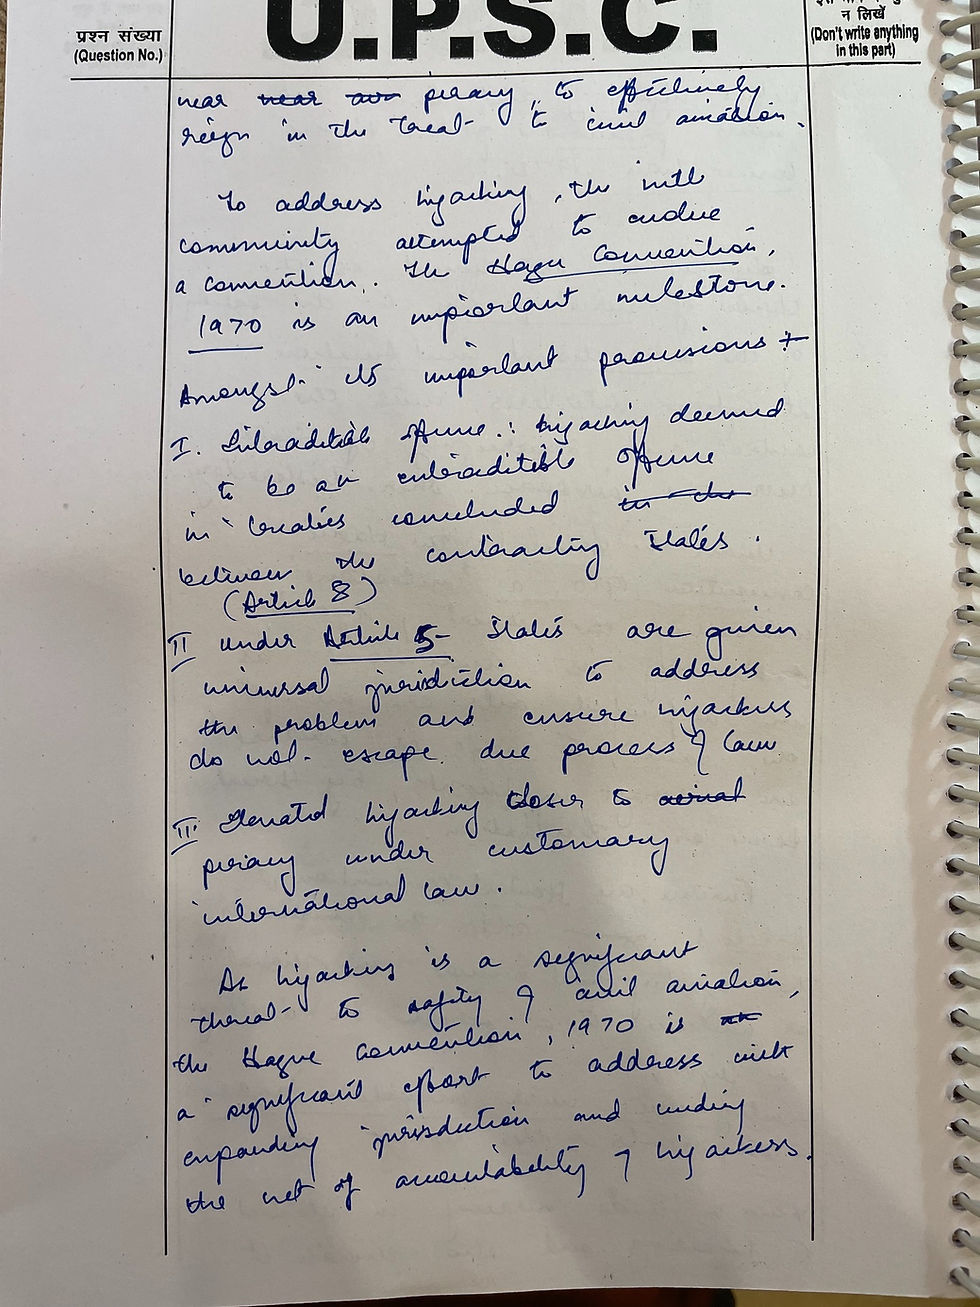 प्रश्न संख्या
(Question No.)
U.P.S.C.
न लिखें
(Don't write anything
in this part)
near near piracy, to effectively
reign in the treat to civil aviation.
To address hijacking, the intl
community attempted to
a convention. The Hague Convention,
1970 is an important milestone.
Amongst its important provisions :-
I. Extraditable offence : hijacking deemed
to be an extraditible offence
in treaties concluded in the
between the contracting States.
(Article 8)
II under Article 5 States are given
universal jurisdiction to address
the problem and ensure hijackers
do not escape due process of law
III Elevated hijacking closer to aerial
piracy under customary
international law.
As hijacking is a significant
threat to safety of civil aviation,
the Hague Convention, 1970 is
a significant effort to address with
expanding jurisdiction and
the net of accountability of hijackers.